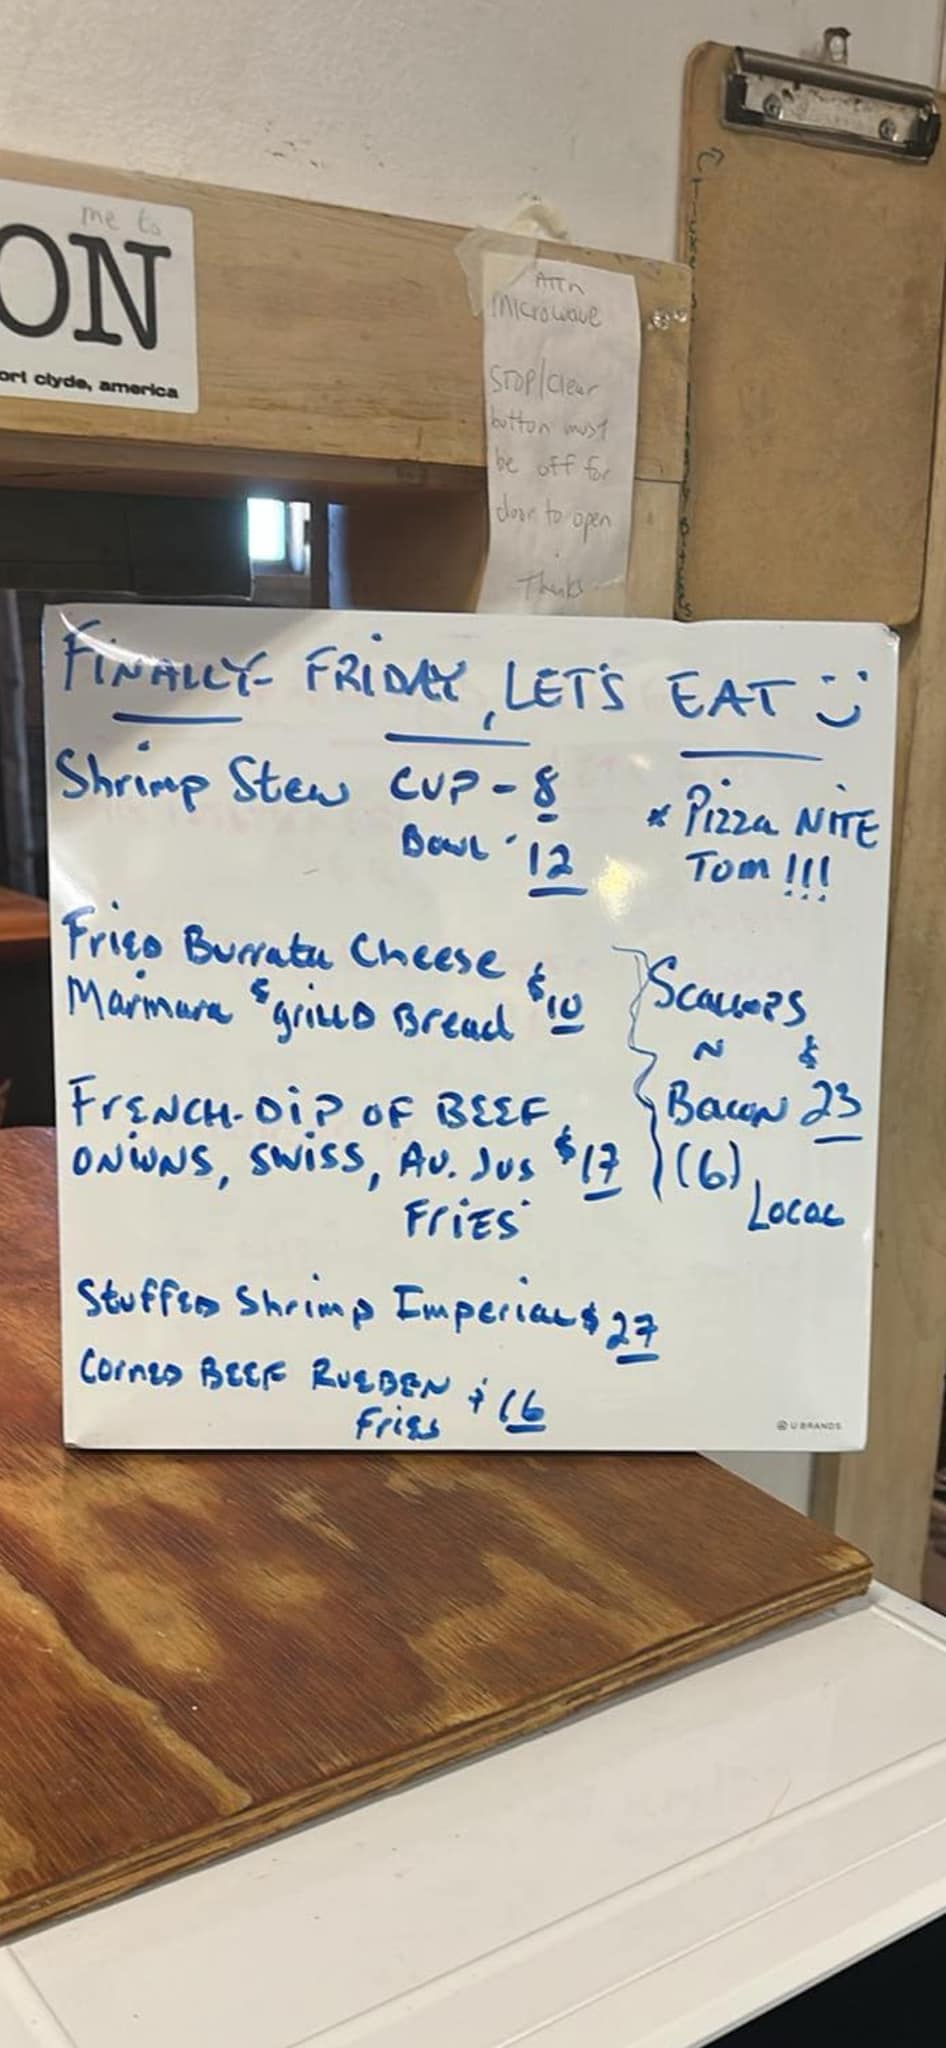 me to
ON
ort clyde, america
ATTn
Microwave
STOP/Clear
button must
be off for
door to open
Thanks
FINALLY- FRIDAY, LET'S EAT
Shrimp Stew CUP - 8
Bowl 12
* Pizza NITE
Tom !!!
Fried Burrata Cheese
Marinara & grilld Bread $10
FRENCH-DIP OF BEEF
ONIONS, SWISS, Au. Jus $17
FRIES
Scallops
N
Bacon $23
(6)
Local
Stuffed Shrimp Imperial $27
Corned BEEF RUEBEN $16
Fries
U BRANDS